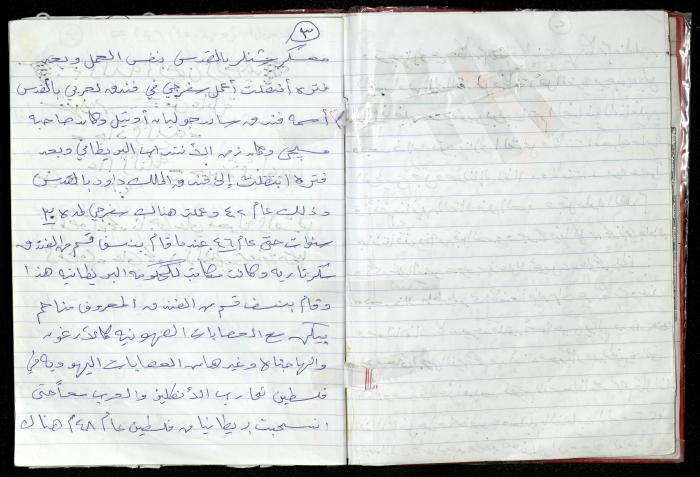 ٣
معسكر شنلر بالقدس بنفس العمل وبعد
فترة أنتقلت أعمل سفرجي في فندق لعربي بالقدس
أسمه فندق سانت جوليان أوتيل وكان صاحبه
مسيحي وكان زمن الأنتداب البريطاني وبعد
فترة انتقلت إلى فندق الملك داود بالقدس
وذلك عام ٤٢ وعملت هناك سفرجي لمدة ٣
سنوات حتى عام ٤٦ عندما قام بنسف قسم من الفندق
سكرتاريه وكانت مكاتب للحكومه البريطانيه هذا
وقام بنسف قسم من الفندق المعروف مناحم
بيكن مع العصابات الصهيونيه كالأرغون
والهاجاناه وغيرها من العصابات اليهوديه في
فلسطين تحارب الأنكليز والعرب معاً حتى
انسحبت بريطانيا من فلسطين عام ٤٨م هناك